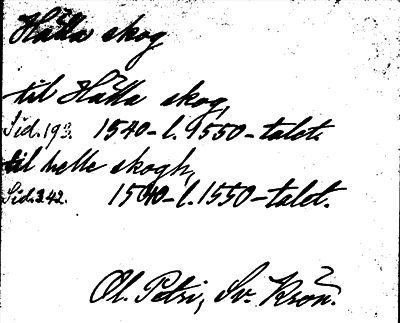 Hålla skog
til Hålla skog,
Sid. 193. 1540- l. 1550-talet.
til helle skogh,
Sid. 242. 1540- l. 1550-talet.
Ol. Petri, Sv. Krön.